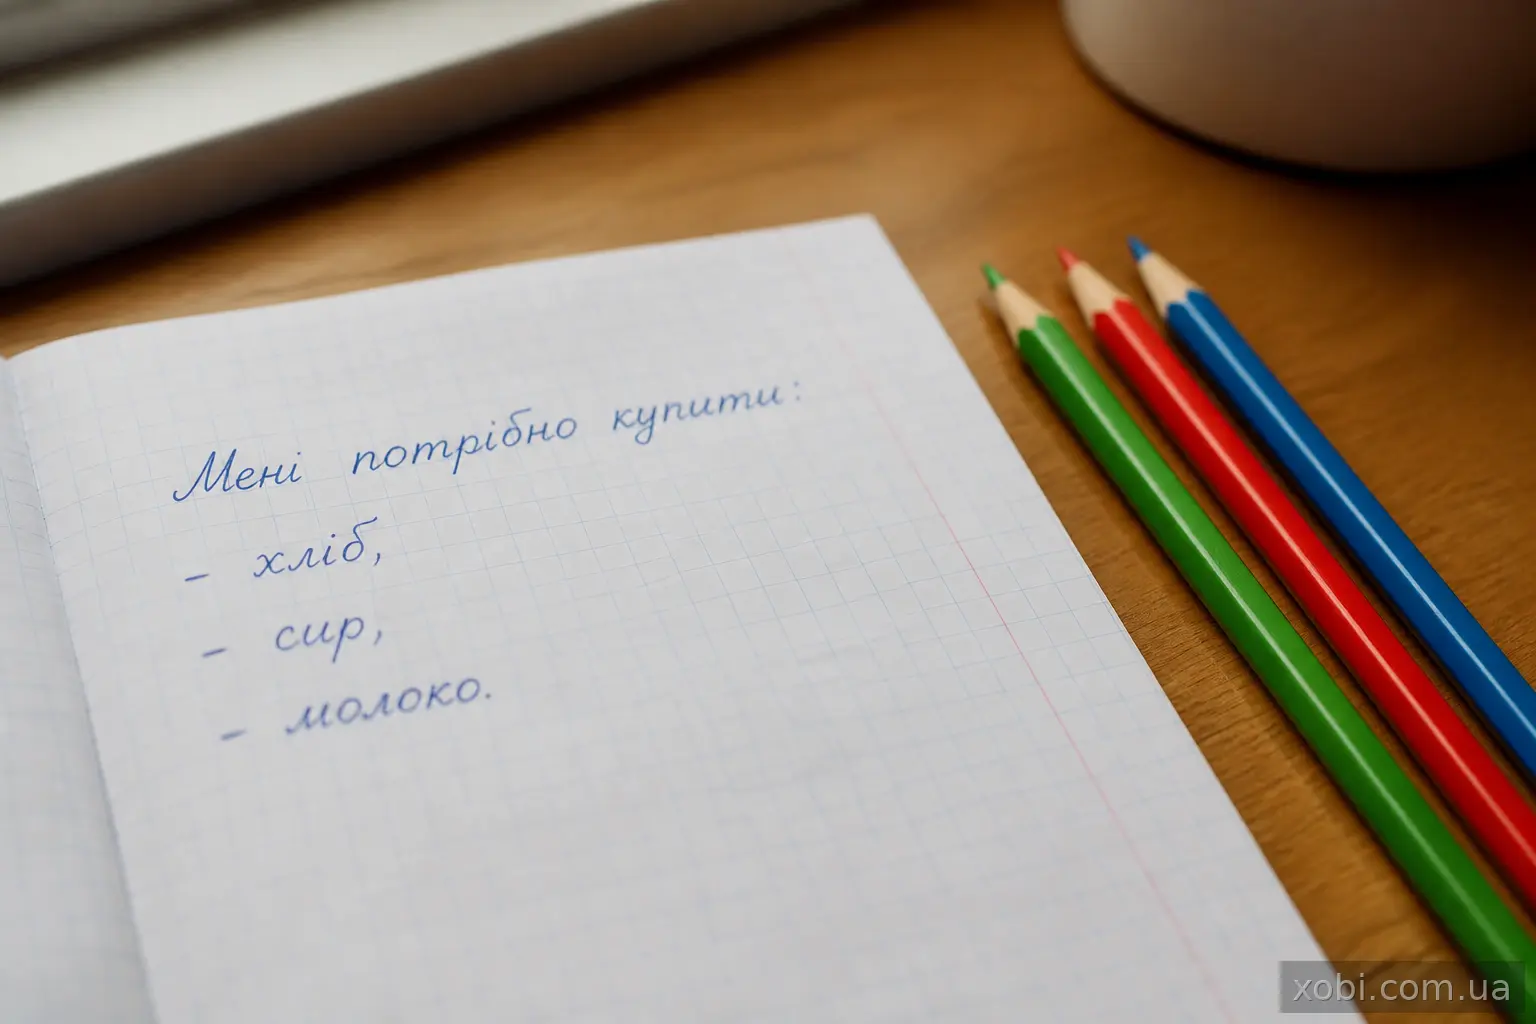 Мені потрібно купити:
- хліб,
- сир,
- молоко.
xobi.com.ua